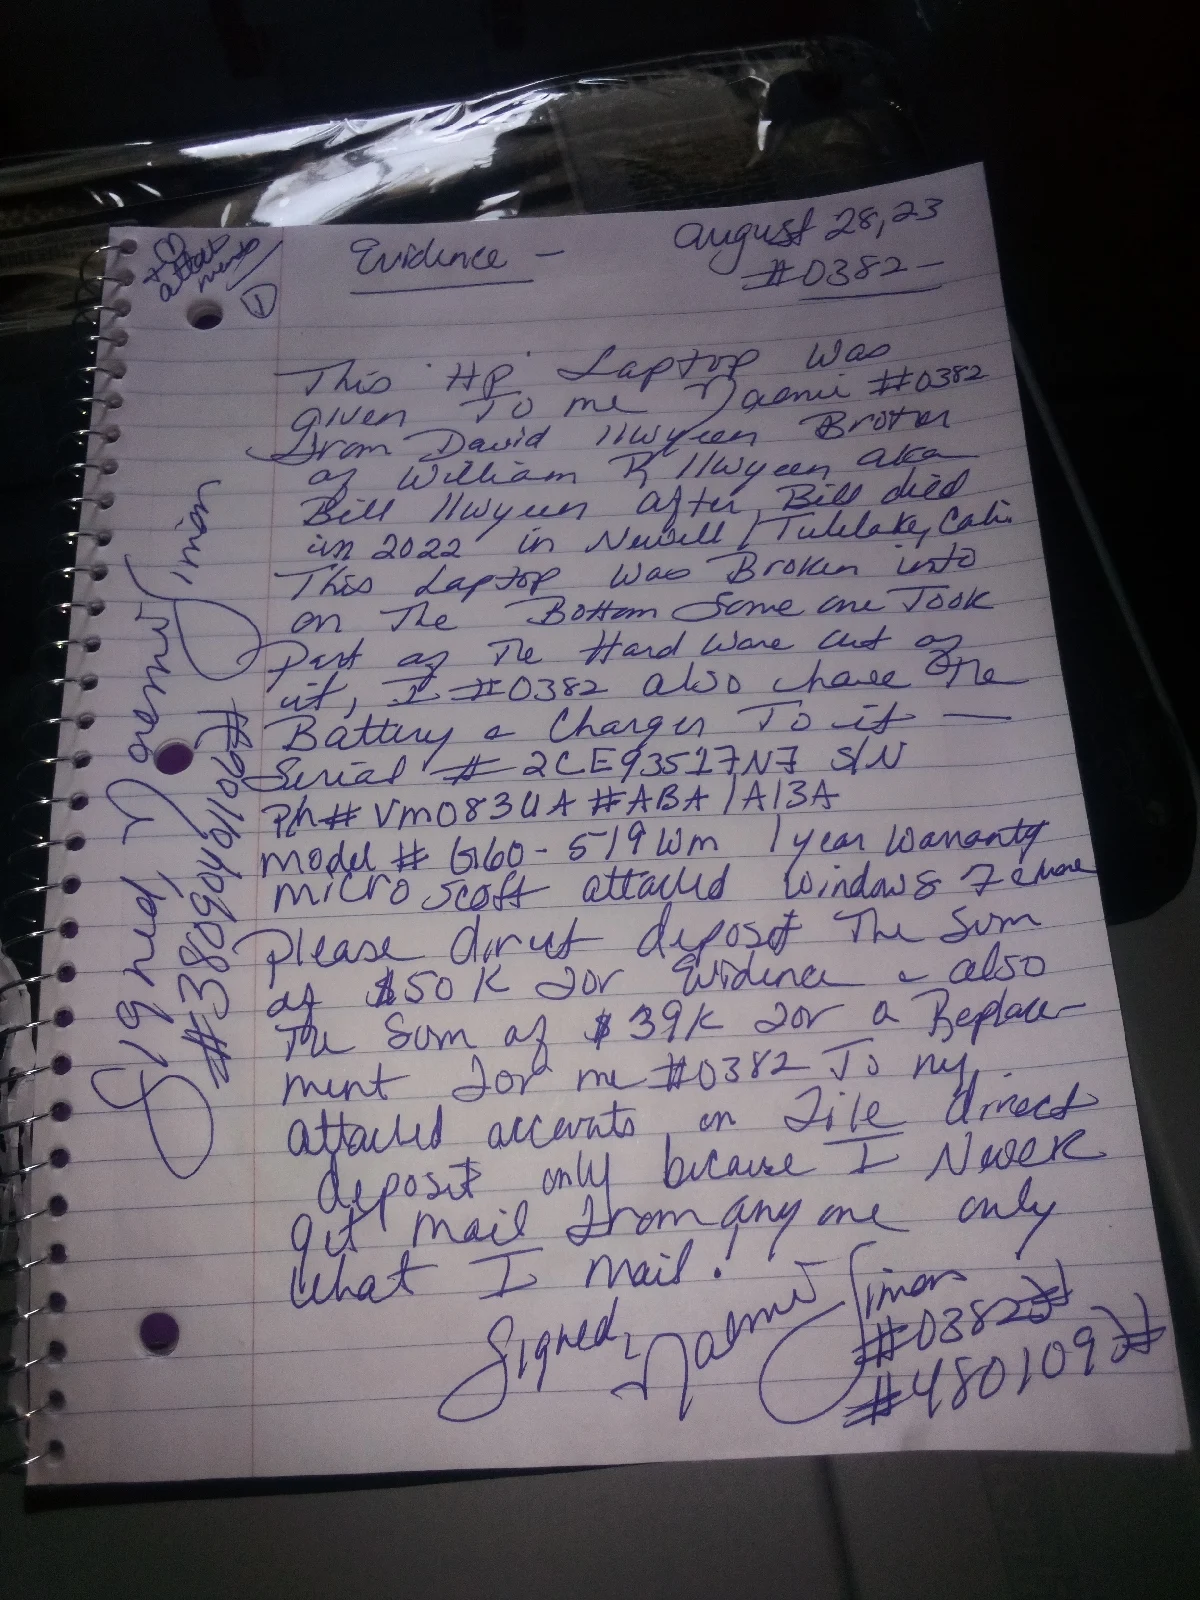 + attach
ments
1
Evidence -
August 28, 23
#0382-
This "HP" Laptop was
given To me Naomi #0382
From David llwyeen Brother
of William R llwyeen aka
Bill llwyeen after Bill died
in 2022 in Newell / Tulelake, Cali.
This Laptop was Broken into
on The Bottom Some one Took
Part of The Hard Ware out of
it, I #0382 also have The
Battery & Charger To it —
Serial # 2CE93517N7 S/N
Ph# VM083UA #ABA / A13A
Model # G60-519Wm 1 year Warranty
Micro scoft attached Windows 7 & more
Please direct deposit The Sum
of $50K For Evidence & also
The Sum of $39K For a Replace-
ment For me #0382 To my
attached accounts on File direct
deposit only because I Never
get mail From any one only
What I mail!
Signed, Naomi Simon
#0382#
#480109#
Signed, Naomi Simon
#380904011067#